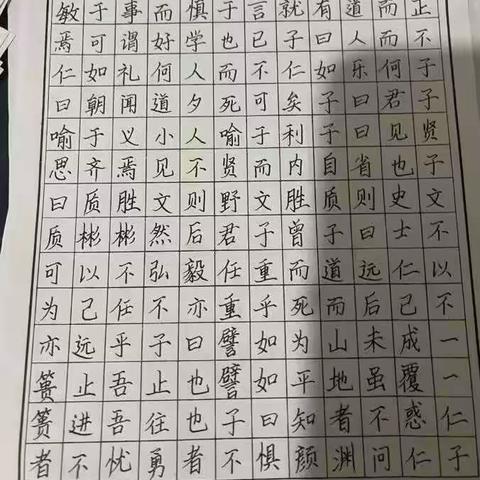 敏于事而惧于言就有道而正
焉可谓好学也已子曰人而不
仁如礼何人而不仁如乐何子
曰朝闻道夕死可矣子曰君子
喻于义小人喻于利子曰见贤
思齐焉见不贤而内自省也子
曰质胜文则野文胜质则史文
质彬彬然后君子曾子曰士不
可以不弘毅任重而道远仁以
为己任不亦重乎死而后己不
亦远乎子曰譬如为山未成一
篑止吾止也譬如平地虽覆一
篑进吾往也子曰知者不惑仁
者不忧勇者不惧颜渊问仁子